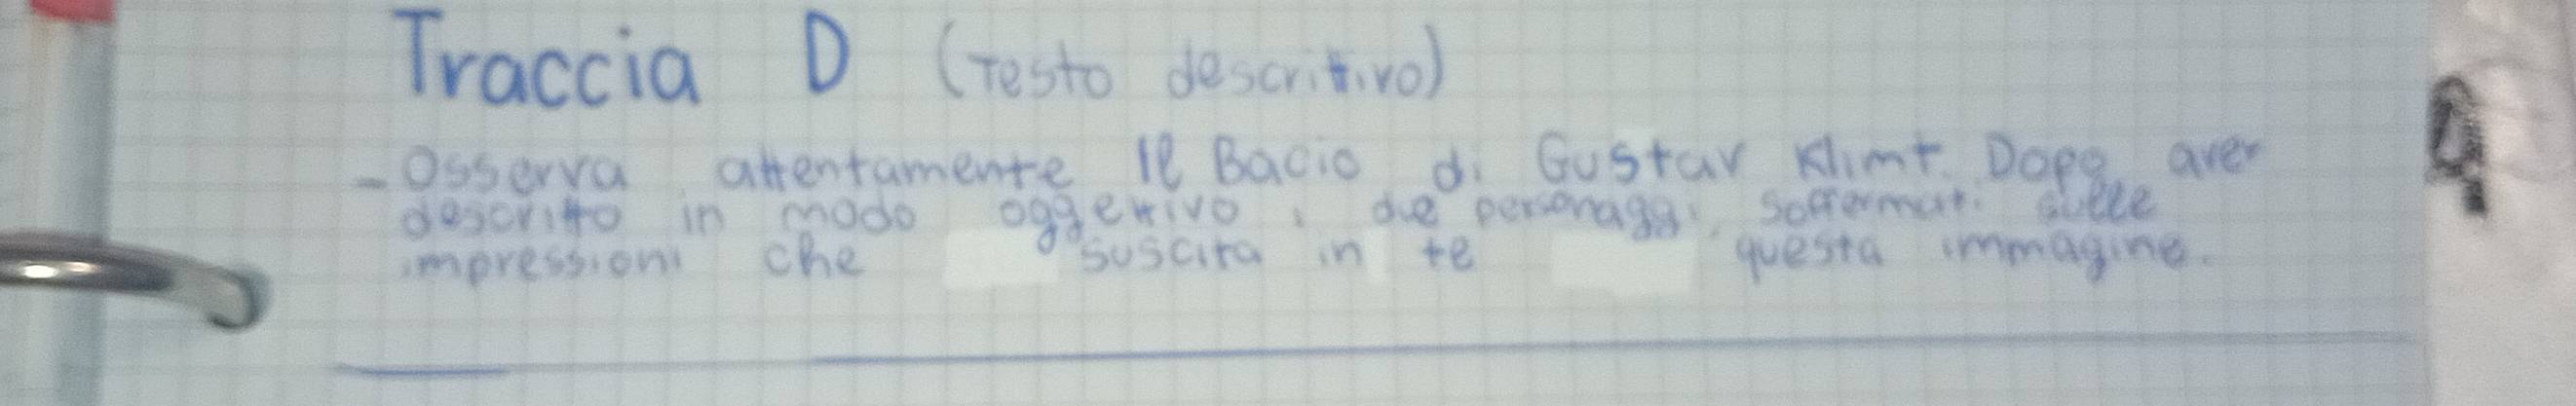 Traccia D (Testo descrittivo)
- Osserva attentamente Il Bacio di Gustav Klimt. Dopo aver
descritto in modo oggettivo i due personaggi, soffermati sulle
impressioni che suscita in te questa immagine.